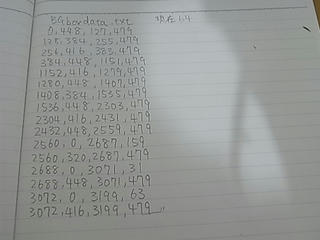 BGboxdata.txt 現在1.4
0,448,127,479
128,384,255,479
256,416,383,479
384,448,1151,479
1152,416,1279,479
1280,448,1407,479
1408,384,1535,479
1536,448,2303,479
2304,416,2431,479
2432,448,2559,479
2560,0,2687,159
2560,320,2687,479
2688,0,3071,31
2688,448,3071,479
3072,0,3199,63
3072,416,3199,479